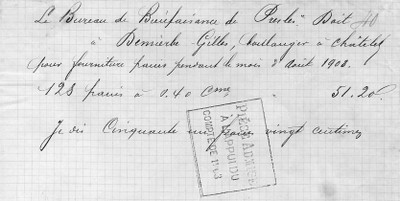 Le Bureau de Bienfaisance de Presles Doit 40
à Demierbe Gilles, boulanger à Châtelet
pour fourniture pains pendant le mois d'août 1900.
128 pains à 0.40 cmes 51.20
Je dis Cinquante un francs vingt centimes
PIÈCE ADMISE
A L'APPUI DU
COMPTE DE